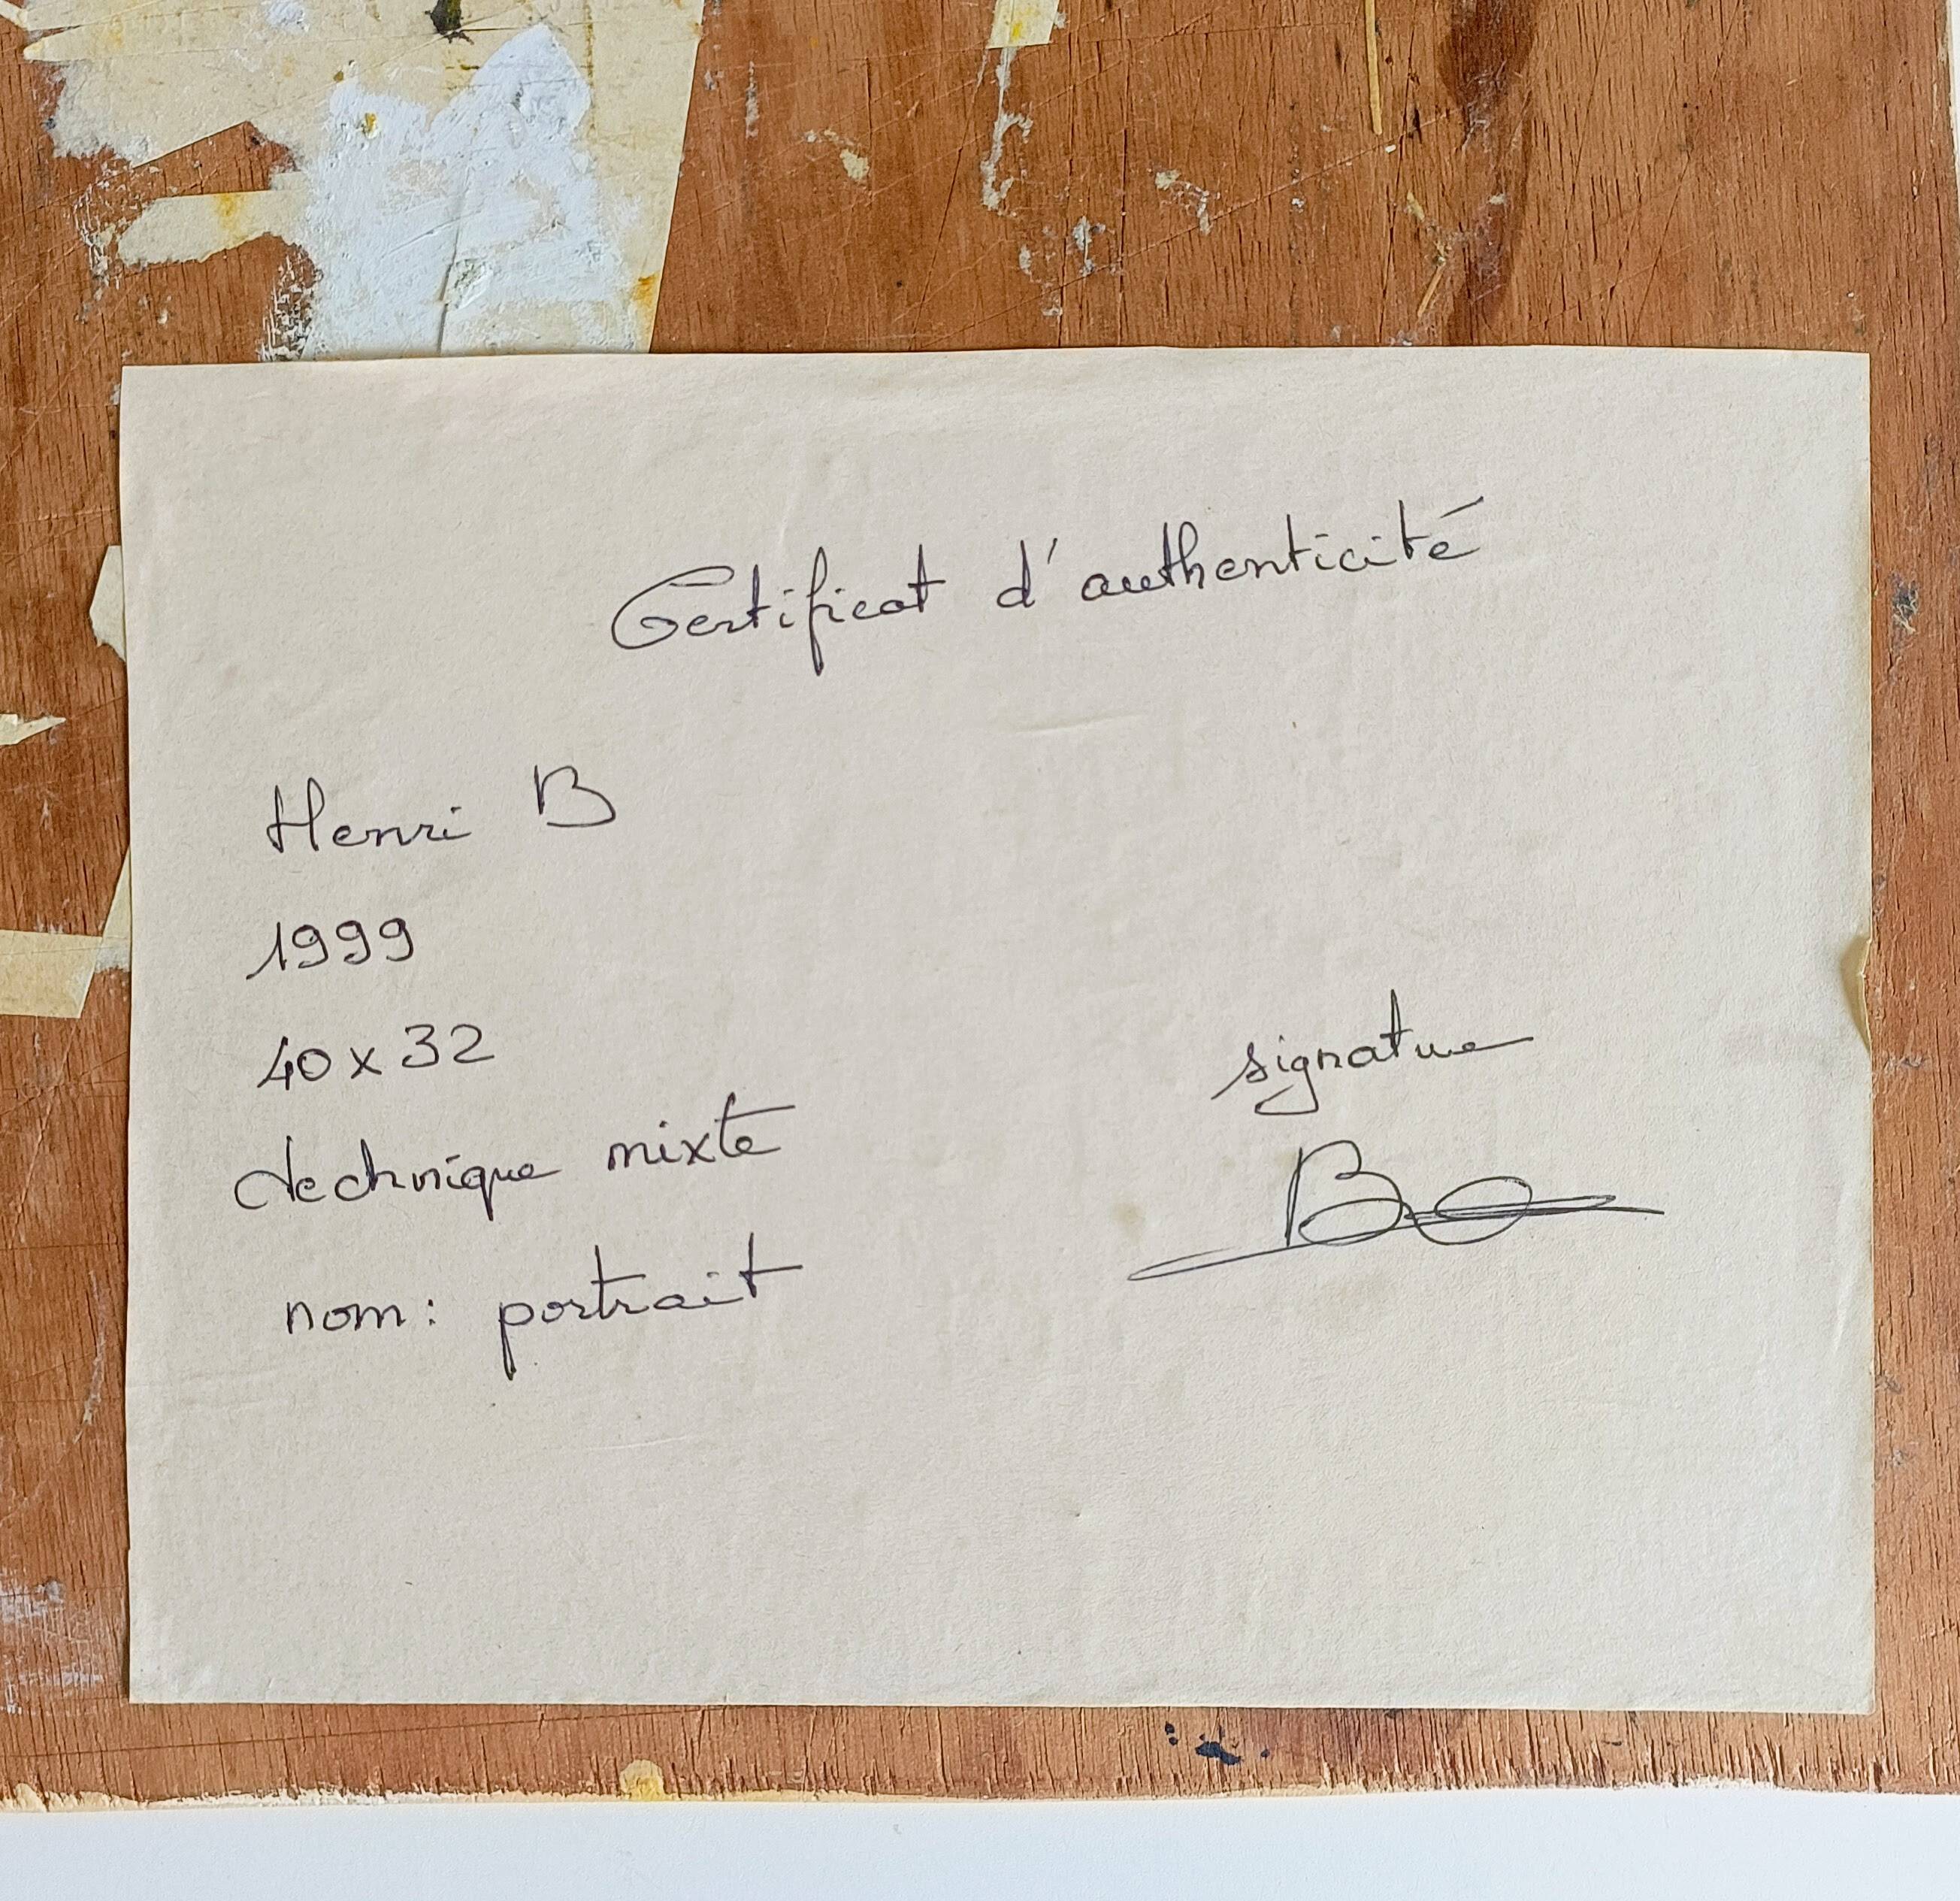 Certificat d'authenticité
Henri B
1999
40 x 32
technique mixte
nom: portrait
signature